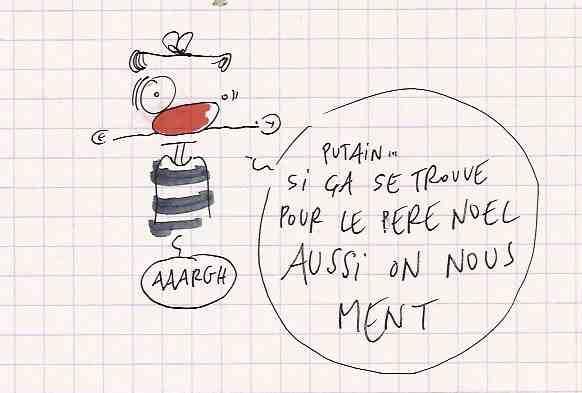 PUTAIN...
SI ÇA SE TROUVE
POUR LE PERE NOEL
AUSSI ON NOUS
MENT
AAARGH